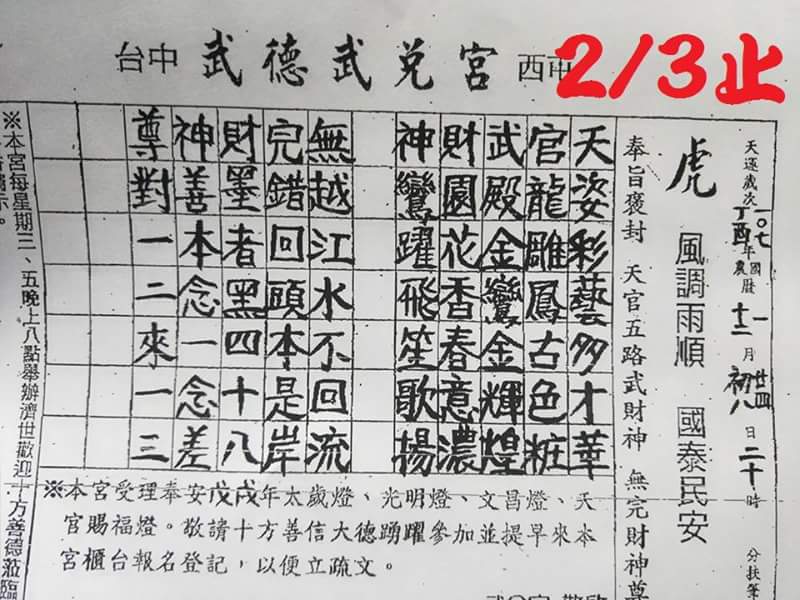 台中 武德武兌宮 西屯
2/3止
天運歲次 一〇七 丁酉 年 國農曆 一 十二 月 廿四 初八 日 二十時 分扶筆
虎 風調雨順 國泰民安
奉旨褒封 天官五路武財神 無完財神尊
天姿彩藝多才華
官龍雕鳳古色粧
武殿金鸞金輝煌
財園花香春意濃
神鸞躍飛笙歌揚
無越江水不回流
完錯回頭本是岸
財墨者黑四十八
神善本念一念差
尊對一二來一三
※本宮受理奉安戊戌年太歲燈、光明燈、文昌燈、天
官賜福燈。敬請十方善信大德踴躍參加並提早來本
宮櫃台報名登記，以便立疏文。
※本宮每星期三、五晚上八點舉辦濟世歡迎十方善德蒞臨
示。